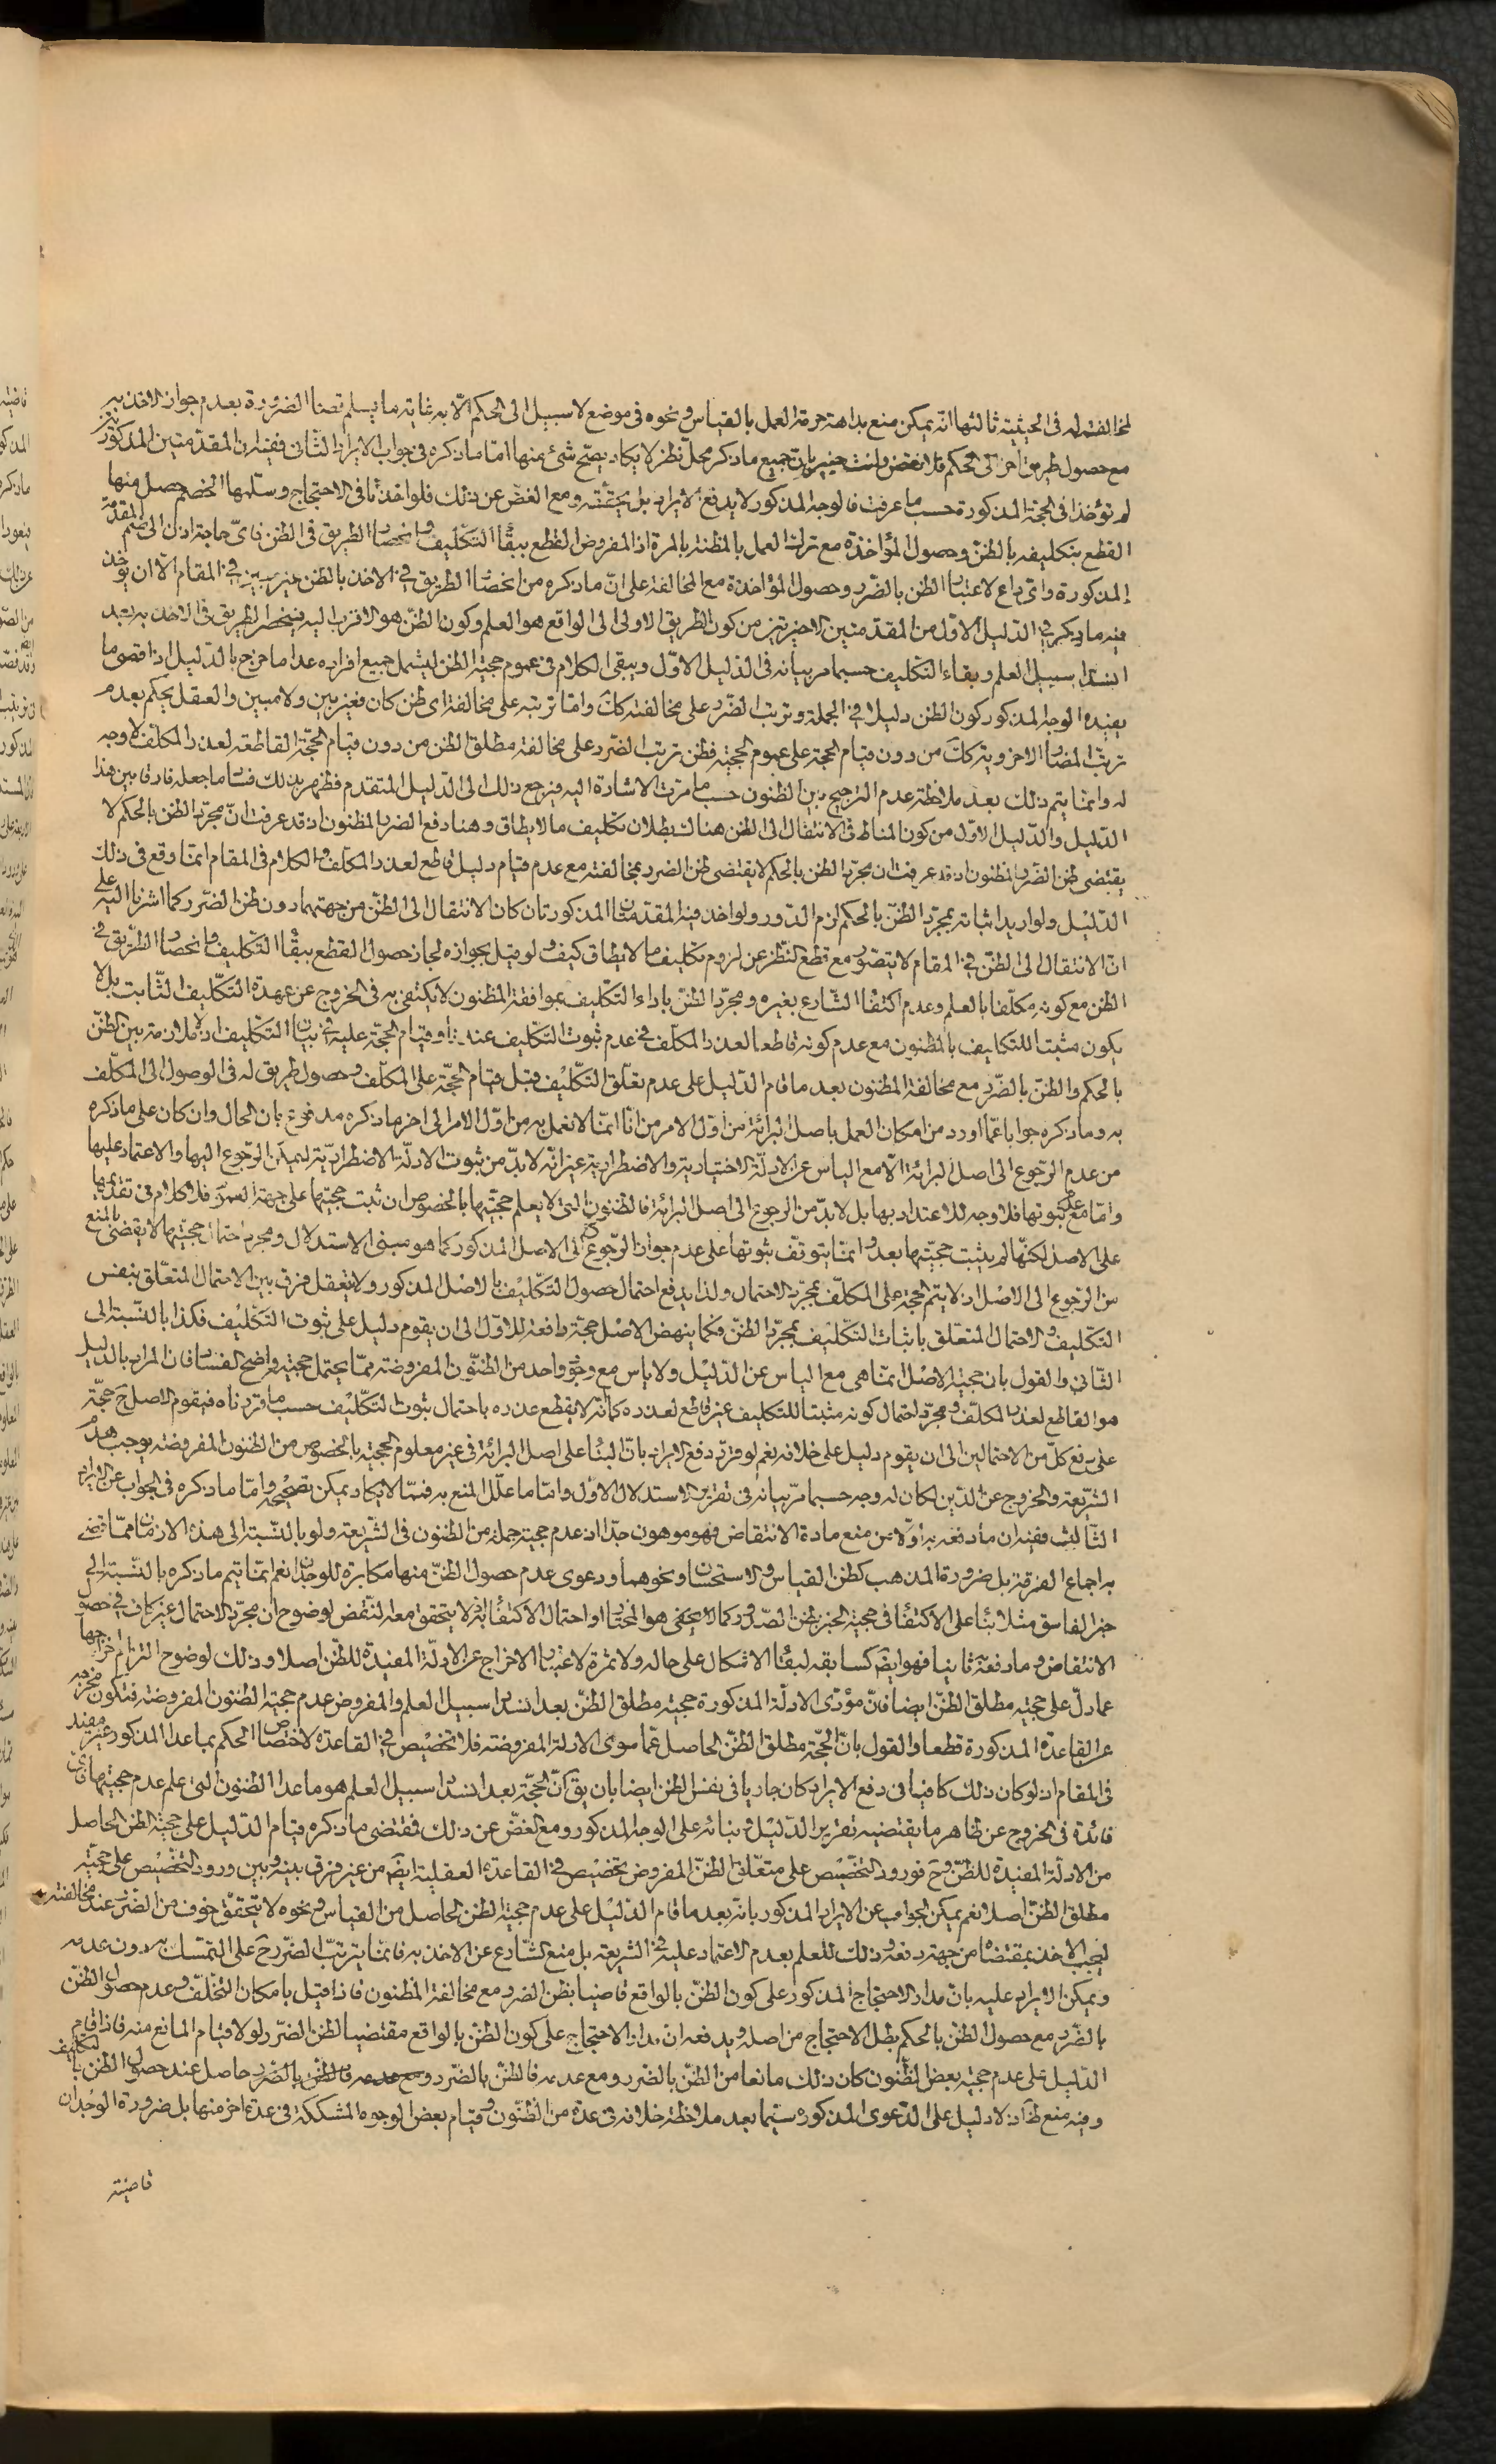 لمخالفته له في الحيثية ثالثها انه يمكن منع بداهة حرمة العمل بالقياس ونحوه في موضع لا سبيل الى الحكم الا به غاية ما يسلم قضاء الضرورة بعدم جواز الاخذ به
مع حصول طريق اخر الى الحكم فلا نقض وانت خبير بان جميع ما ذكر محل نظر لا يكاد يصح شئ منها اما ما ذكره في جواب الايراد الثاني ففيه ان المقدمتين المذكورتين
لم تؤخذا في الحجة المذكورة حسب ما عرفت فالوجه المذكور لا يدفع الايراد بل يحققه ومع الغض عن ذلك فلو اخذتا في الاحتجاج وسلمها الخصم حصل منها
القطع بتكليفه بالظن وحصول المؤاخذة مع ترك العمل بالمظنة بالمرة اذ المفروض القطع ببقاء التكليف وانحصار الطريق في الظن فاي حاجة اذن الى ضم المقدمة
المذكورة واي داع لاعتبار الظن بالضرر وحصول المؤاخذة مع المخالفة على ان ما ذكره من انحصار الطريق في الاخذ بالظن غير بين في المقام الا ان يؤخذ
فيه ما ذكر في الدليل الاول من المقدمتين الاخيرتين من كون الطريق الاولى الى الواقع هو العلم وكون الظن هو الاقرب اليه فينحصر الطريق في الاخذ به بعد
انسداد سبيل العلم وبقاء التكليف حسبما مر بيانه في الدليل الاول ويبقى الكلام في عموم حجية الظن ليشمل جميع افراده عدا ما خرج بالدليل اذ اقصى ما
يفيده الوجه المذكور كون الظن دليلا في الجملة وترتب الضرر على مخالفته كك واما ترتبه على مخالفة اي ظن كان فغير بين ولا مبين والعقل يحكم بعدم
ترتب المضار الاخروية كك من دون قيام الحجة على عموم الحجية فظن ترتب الضرر على مخالفة مطلق الظن من دون قيام الحجة القاطعة لعذر المكلف لا وجه
له وانما يتم ذلك بعد ملاحظة عدم الترجيح بين الظنون حسب ما مرت الاشارة اليه فيرجع ذلك الى الدليل المتقدم فظهر بذلك فساد ما جعله فارقا بين هذا
الدليل والدليل الاول من كون المناط في الانتقال الى الظن هناك بطلان تكليف ما لا يطاق وهنا دفع الضرر المظنون اذ قد عرفت ان مجرد الظن بالحكم لا
يقتضي ظن الضرر المظنون اذ قد عرفت ان مجرد الظن بالحكم لا يقتضي ظن الضرر بمخالفته مع عدم قيام دليل قاطع لعذر المكلف والكلام في المقام انما وقع في ذلك
الدليل ولو اريد اثباته بمجرد الظن بالحكم لزم الدور ولو اخذ فيه المقدمتان المذكورتان كان الانتقال الى الظن من جهتهما دون ظن الضرر كما اشرنا اليه على
ان الانتقال الى الظن في المقام لا يتصور مع قطع النظر عن لزوم تكليف ما لا يطاق كيف ولو قيل بجوازه لجاز حصول القطع ببقاء التكليف وانحصار الطريق في
الظن مع كونه مكلفا بالعلم وعدم اكتفاء الشارع بغيره ومجرد الظن باداء التكليف بموافقة المظنون لا يكتفى به في الخروج عن عهدة التكليف الثابت بل لا
يكون مثبتا للتكليف بالمظنون مع عدم كونه قاطعا لعذر المكلف في عدم ثبوت التكليف عنده وقيام الحجة عليه في بيان التكليف اذ لا ملازمة بين الظن
بالحكم والظن بالضرر مع مخالفة المظنون بعد ما قام الدليل على عدم تعلق التكليف قبل قيام الحجة على المكلف وحصول طريق له في الوصول الى المكلف
به وما ذكره جوابا عما اورد من امكان العمل باصل البرائة من اول الامر من انا انما لا نعمل به من اول الامر الى اخر ما ذكره مدفوع بان الحال وان كان على ما ذكره
من عدم الرجوع الى اصل البرائة الا مع الياس عن الادلة الاختيارية والاضطرارية غير انه لا بد من ثبوت الادلة الاضطرارية ليمكن الرجوع اليها والاعتماد عليها
واما مع عدم ثبوتها فلا وجه للاعتداد بها بل لا بد من الرجوع الى اصل البرائة فالظنون التي لا يعلم حجيتها بالخصوص ان ثبت حجيتها على جهة العموم فلا كلام في تقديمها
على الاصل لكنها لم يثبت حجيتها بعد وانما يتوقف ثبوتها على عدم جواز الرجوع الى الاصل المذكور كما هو مبنى الاستدلال ومجرد احتمال حجيتها لا يقضي بالمنع
من الرجوع الى الاصل اذ لا يتم الحجة على المكلف بمجرد الاحتمال ولذا يدفع احتمال حصول التكليف بالاصل المذكور ولا يتعقل فرق بين الاحتمال المتعلق بنفس
التكليف والاحتمال المتعلق باثبات التكليف بمجرد الظن فكما ينهض الاصل حجة دافعة للاول الى ان يقوم دليل على ثبوت التكليف فكذا بالنسبة الى
الثاني والقول بان حجية الاصل انما هي مع الياس عن الدليل ولا ياس مع وجود واحد من الظنون المفروضة مما يحتمل حجيته واضح الفساد فان المراد بالدليل
هو القاطع لعذر المكلف ومجرد احتمال كونه مثبتا للتكليف غير قاطع لعذره كما انه لا يقطع عذره باحتمال ثبوت التكليف حسب ما قررناه فيقوم الاصل ح حجة
على رفع كل من الاحتمالين الى ان يقوم دليل على خلافه نعم لو قرر دفع الايراد بان البناء على اصل البرائة في غير معلوم الحجية بالخصوص من الظنون المفروضة يوجب هدم
الشريعة والخروج عن الدين لكان له وجه حسبما مر بيانه في تقرير الاستدلال الاول واما ما علل المنع به فمما لا يكاد يمكن تصحيحه واما ما ذكره في الجواب عن الايراد
الثالث ففيه ان ما دفعه به اولا من منع مادة الانتقاض فهو موهون جدا اذ عدم حجية جملة من الظنون في الشريعة ولو بالنسبة الى هذه الازمان مما قضى
به اجماع الفرقة بل ضرورة المذهب كظن القياس والاستحسان ونحوهما ودعوى عدم حصول الظن منها مكابرة للوجدان نعم انما يتم ما ذكره بالنسبة الى
خبر الفاسق مثلا بناء على الاكتفاء في حجية الخبر بظن الصدور كما لا يخفى هو المختار او احتمال الاكتفاء به اذ لا يتحقق معه النقض لوضوح ان مجرد الاحتمال غير كاف في حصول
الانتقاض وما دفعه ثانيا فهو ايضا كسابقه لبقاء الاشكال على حاله ولا ثمرة لاعتبار الاخراج عن الادلة المفيدة للظن اصلا وذلك لوضوح التزام اخراجها
عما دل على حجية مطلق الظن ايضا فان مؤدى الادلة المذكورة حجية مطلق الظن بعد انسداد سبيل العلم والمفروض عدم حجية الظنون المفروضة فتكون مخرجة
عن القاعدة المذكورة قطعا والقول بان الحجة مطلق الظن الحاصل عما سوى الادلة المفروضة فلا تخصيص في القاعدة لاختصاص الحكم بما عدا المذكور غير مفيد
في المقام اذ لو كان ذلك كافيا في دفع الايراد كان جاريا في نفس الظن ايضا بان يق ان الحجة بعد انسداد سبيل العلم هو ما عدا الظنون التي علم عدم حجيتها فاي
فائدة في الخروج عن ظاهر ما يقتضيه تقرير الدليل وبنائه على الوجه المذكور ومع الغض عن ذلك فمقتضى ما ذكره قيام الدليل على حجية الظن الحاصل
من الادلة المفيدة للظن وح فورود التخصيص على متعلق الظن المفروض تخصيص في القاعدة العقلية ايضا من غير فرق بينه وبين ورود التخصيص على حجية
مطلق الظن اصلا نعم يمكن الجواب عن الايراد المذكور بانه بعد ما قام الدليل على عدم حجية الظن الحاصل من القياس ونحوه لا يتحقق خوف من الضرر عند مخالفته
ليجب الاخذ بمقتضاه من جهة دفعه وذلك للعلم بعدم الاعتماد عليه في الشريعة بل منع الشارع عن الاخذ به فانما يترتب الضرر ح على التمسك به دون عدمه
ويمكن الايراد عليه بان مدار الاحتجاج المذكور على كون الظن بالواقع قاضيا بظن الضرر مع مخالفة المظنون فاذا قيل بامكان التخلف وعدم حصول الظن
بالضرر مع حصول الظن بالحكم بطل الاحتجاج من اصله ويدفعه ان مدار الاحتجاج على كون الظن بالواقع مقتضيا لظن الضرر لولا قيام المانع منه فاذا قام
الدليل على عدم حجية بعض الظنون كان ذلك مانعا من الظن بالضرر ومع عدمه فالظن بالضرر ومع عدمه فالظن بالضرر حاصل عند حصول الظن بالتكليف
وفيه منع ظ اذ لا دليل على الدعوى المذكورة سيما بعد ملاحظة خلافه في عدة من الظنون وقيام بعض الوجوه المشككة في عدة اخر منها بل ضرورة الوجدان
قاضية